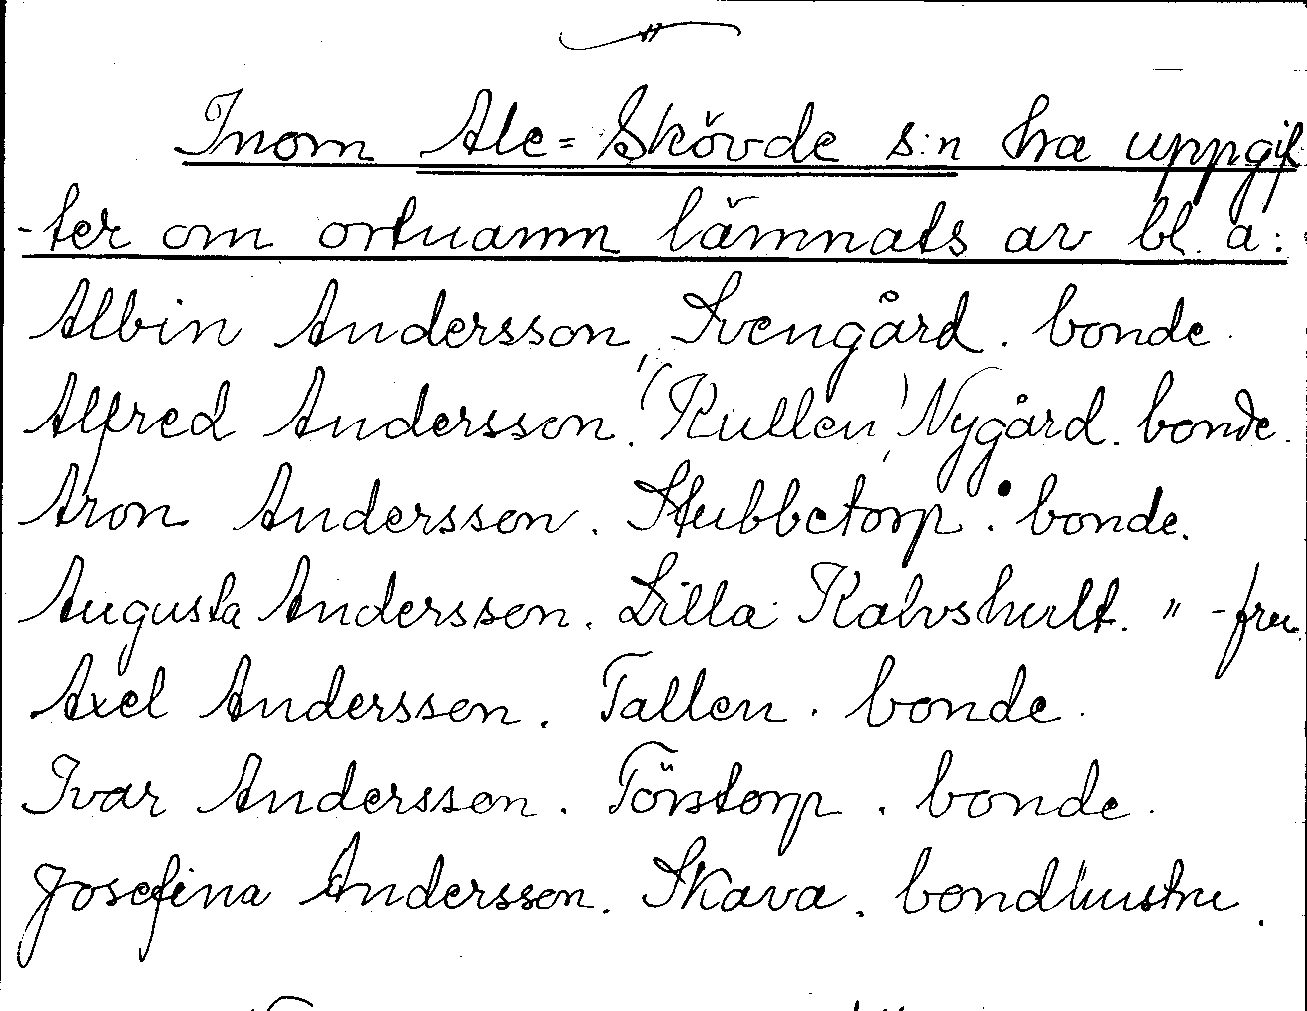 Inom Ale=Skövde s:n ha uppgif
-ter om ortnamn lämnats av bl. a:
Albin Andersson, Svengård. bonde.
Alfred Andersson. (Kullen) Nygård. bonde.
Aron Andersson. Stubbetorp. bonde.
Augusta Andersson. Lilla Kalvshult. " -fru.
Axel Andersson. Tallen. bonde.
Ivar Andersson. Törstorp. bonde.
Josefina Andersson. Skava. bondhustru.